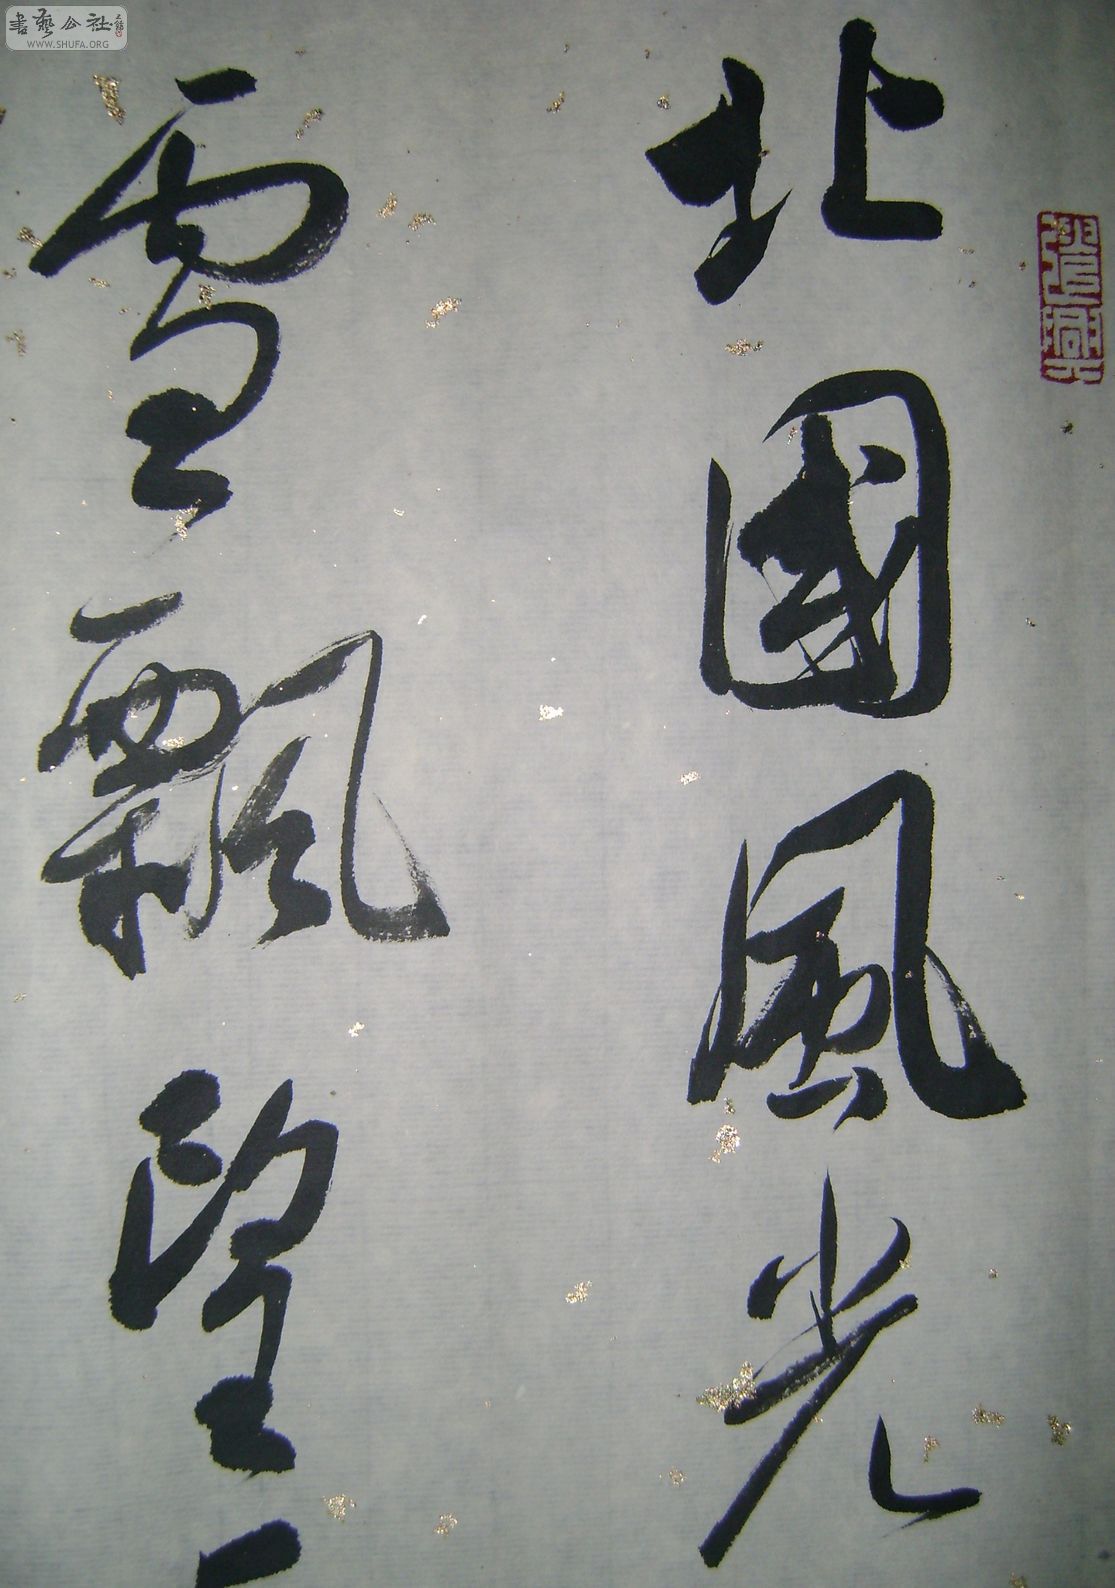 北國風光
雪飄望
書藝公社
WWW.SHUFA.ORG